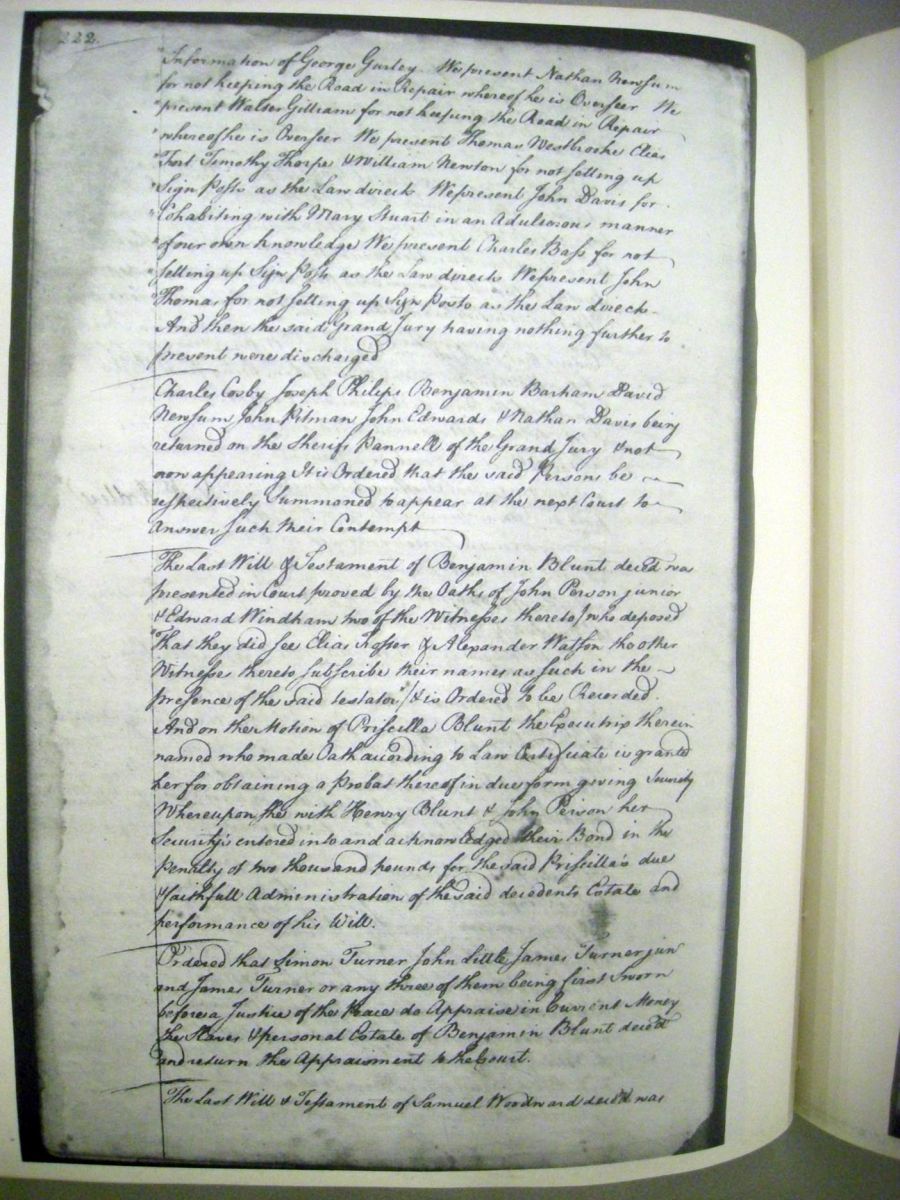 222.
"Information of George Gurley. We present Nathan Newsum
"for not keeping the Road in Repair whereof he is Overseer We
"present Walter Gilliam for not keeping the Road in Repair
"whereof he is Overseer We present Thomas Westbrooke Elias
"Fort Timothy Thorpe & William Newton for not setting up
"Sign Posts as the Law directs We present John Davis for
"Cohabiting with Mary Stuart in an Adulterous manner
"of our own knowledge We present Charles Bass for not
"setting up Sign Posts as the Law directs We present John
"Thomas for not setting up Sign Posts as the Law directs.
And then the said Grand Jury having nothing further to
present were discharged
Charles Cosby Joseph Philips Benjamin Barham David
Newsum John Pitman John Edwards & Nathan Davis being
returned on the Sherifs Pannell of the Grand Jury & not
now appearing It is Ordered that the said Persons be
respectively Summoned to appear at the next Court to
answer such their Contempt
The Last Will & Testament of Benjamin Blunt deced was
presented in Court proved by the Oaths of John Person junior
& Edward Windham two of the Witnesses thereto/who deposed
"That they did see Elias & Alexander Watson the other
Witnesses thereto subscribe their names as such in the
presence of the said testator"/& is Ordered to be Recorded.
And on the Motion of Priscilla Blunt the Executrix therein
named who made Oath according to Law Certificate is granted
her for obtaining a Probat thereof in due form giving Security
Whereupon she with Henry Blunt & John Person her
Security's entered into and acknowledged their Bond in the
Penalty of two thousand pounds for the said Priscilla's due
& faithfull Administration of the said decedents Estate and
performance of his Will.
Ordered that Simon Turner John Little James Turner jun
and James Turner or any three of them being first Sworn
before a Justice of the Peace do Appraise in Current Money
the Slaves & personal Estate of Benjamin Blunt deced
and return the Appraisment to the Court.
The Last Will & Testament of Samuel Woodward deced was